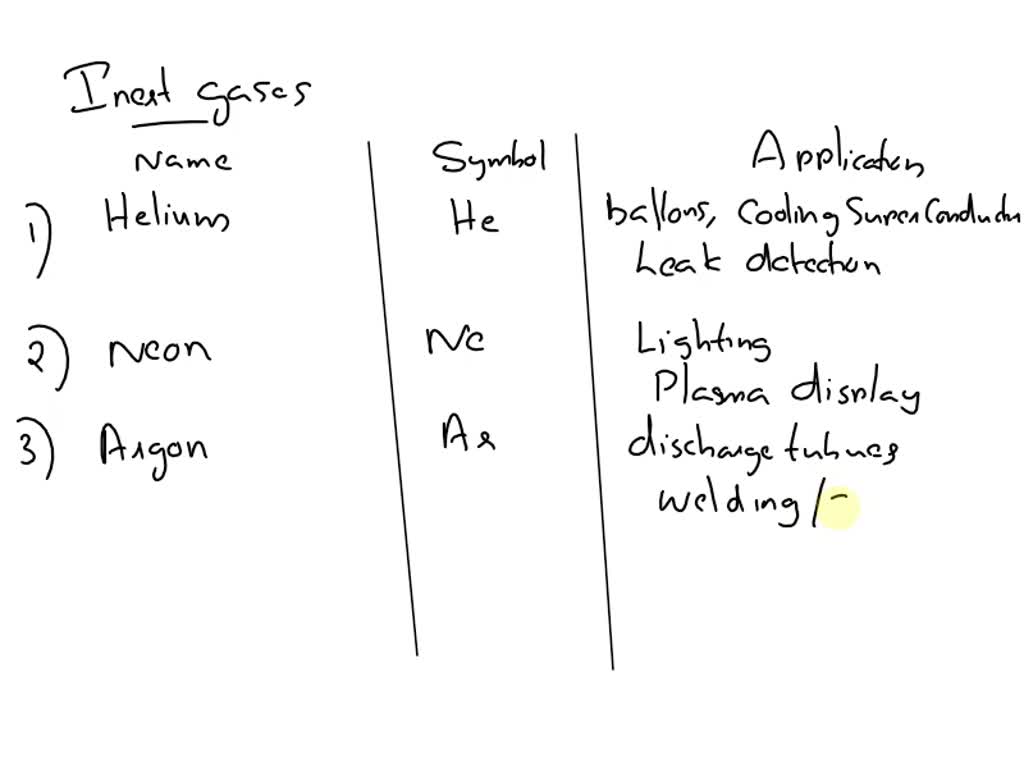 Inert gases
Name Symbol Application
1) Helium He ballons, Cooling SuperConductr
Leak detection
2) Neon Ne Lighting
Plasma display
3) Argon Ar discharge tubues
welding /-